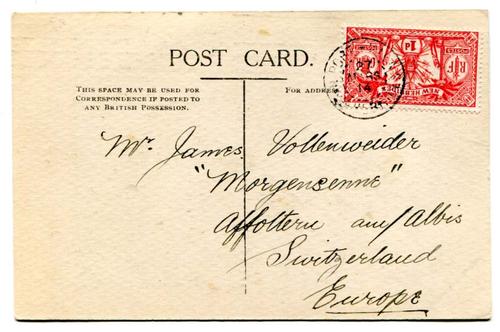 POST CARD.
THIS SPACE MAY BE USED FOR
CORRESPONDENCE IF POSTED TO
ANY BRITISH POSSESSION.
FOR ADDRESS
Mr. James Vollenweider
"Morgensenne"
Affoltern am/Albis
Switzerland
Europe
NEW HEBRIDES
1d
RF
POSTES
14